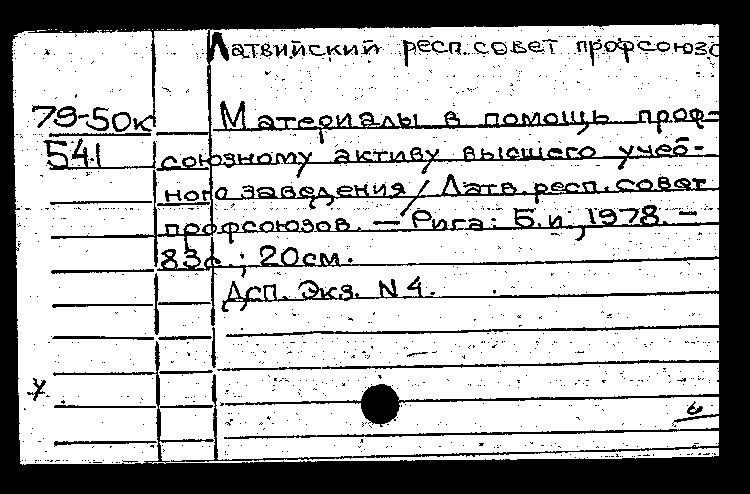 Латвийский респ. совет профсоюзо
79-50к Материалы в помощь проф-
541 союзному активу высшего учеб-
ного заведения / Латв. респ. совет
профсоюзов. — Рига: Б.и., 1978. —
83с.; 20см.
Дсп. Экз. N 4.
у